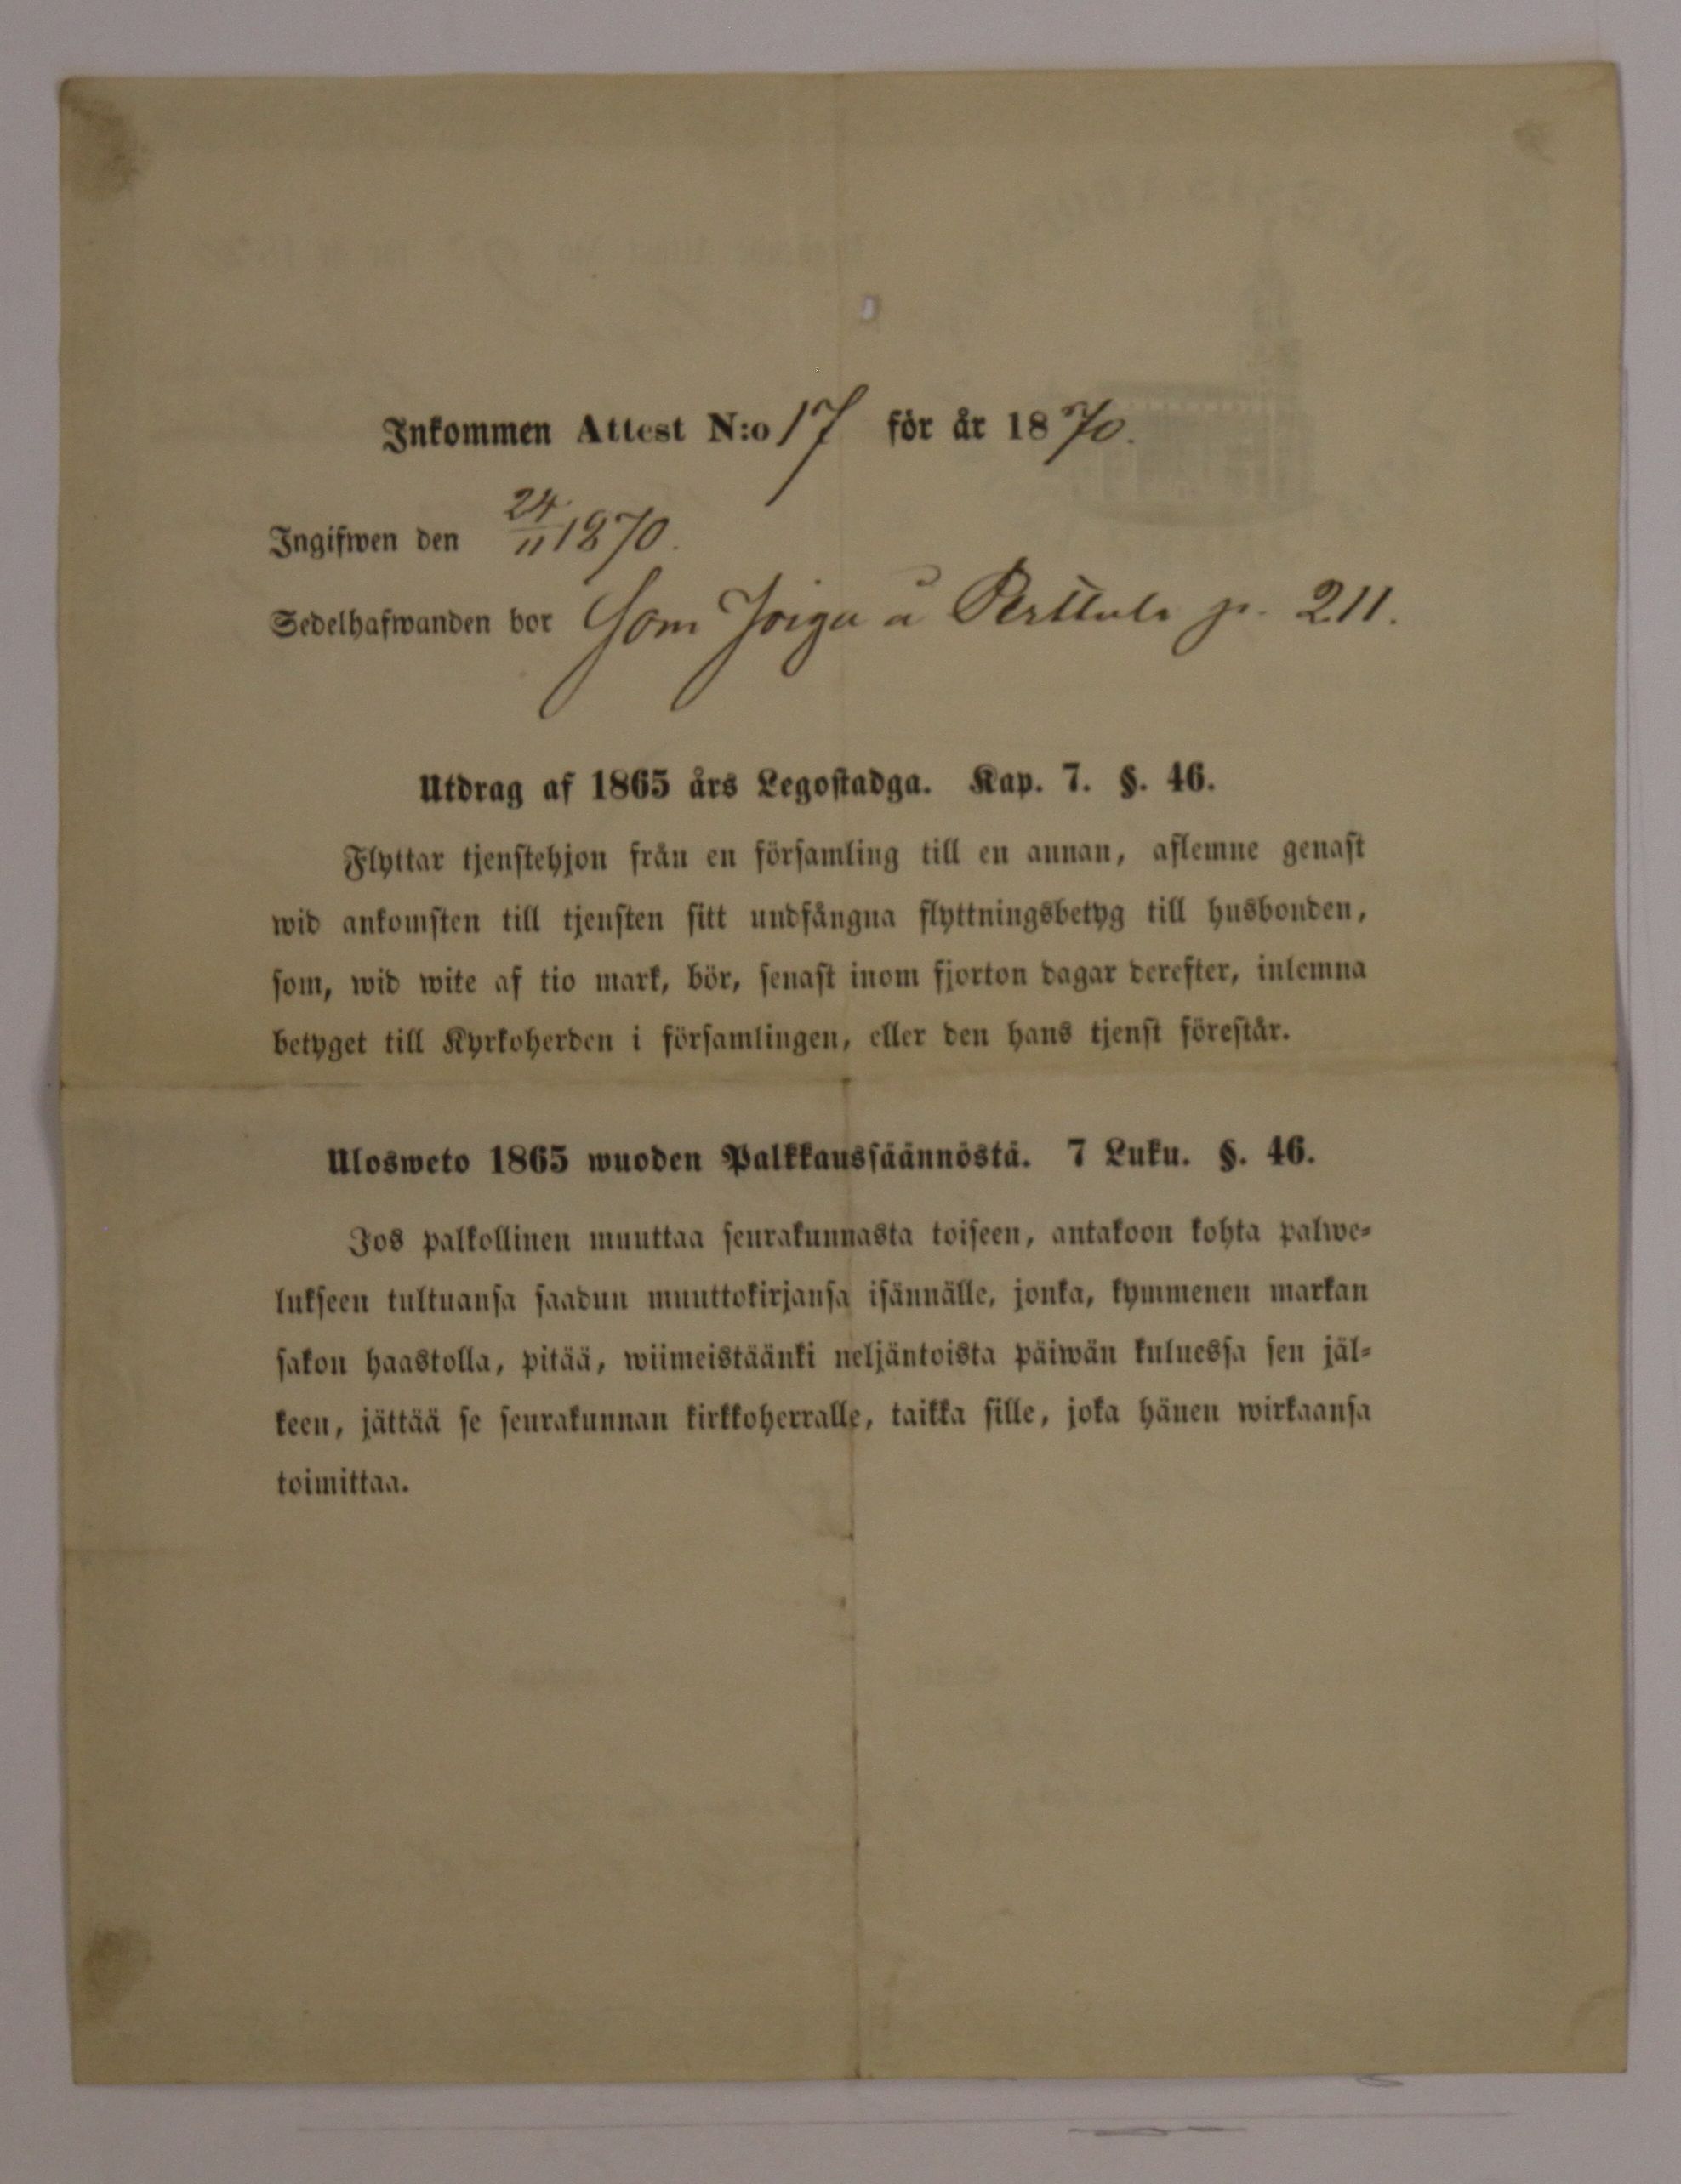 Inkommen Attest N:o 17 för år 1870.
Ingifwen den 24/11 1870.
Sedelhafwanden bor Som Joiga å Perttula p. 211.
Utdrag af 1865 års Legostadga. Kap. 7. §. 46.
Flyttar tjenstehjon från en församling till en annan, aflemne genast
wid ankomsten till tjensten sitt undfångna flyttningsbetyg till husbonden,
som, wid wite af tio mark, bör, senast inom fjorton dagar derefter, inlemna
betyget till Kyrkoherden i församlingen, eller den hans tjenst förestår.
Ulosweto 1865 wuoden Palkkaussäännöstä. 7 Luku. §. 46.
Jos palkollinen muuttaa seurakunnasta toiseen, antakoon kohta palwe-
lukseen tultuansa saadun muuttokirjansa isännälle, jonka, kymmenen markan
sakon haastolla, pitää, wiimeistäänki neljäntoista päiwän kuluessa sen jäl-
keen, jättää se seurakunnan kirkkoherralle, taikka sille, joka hänen wirkaansa
toimittaa.